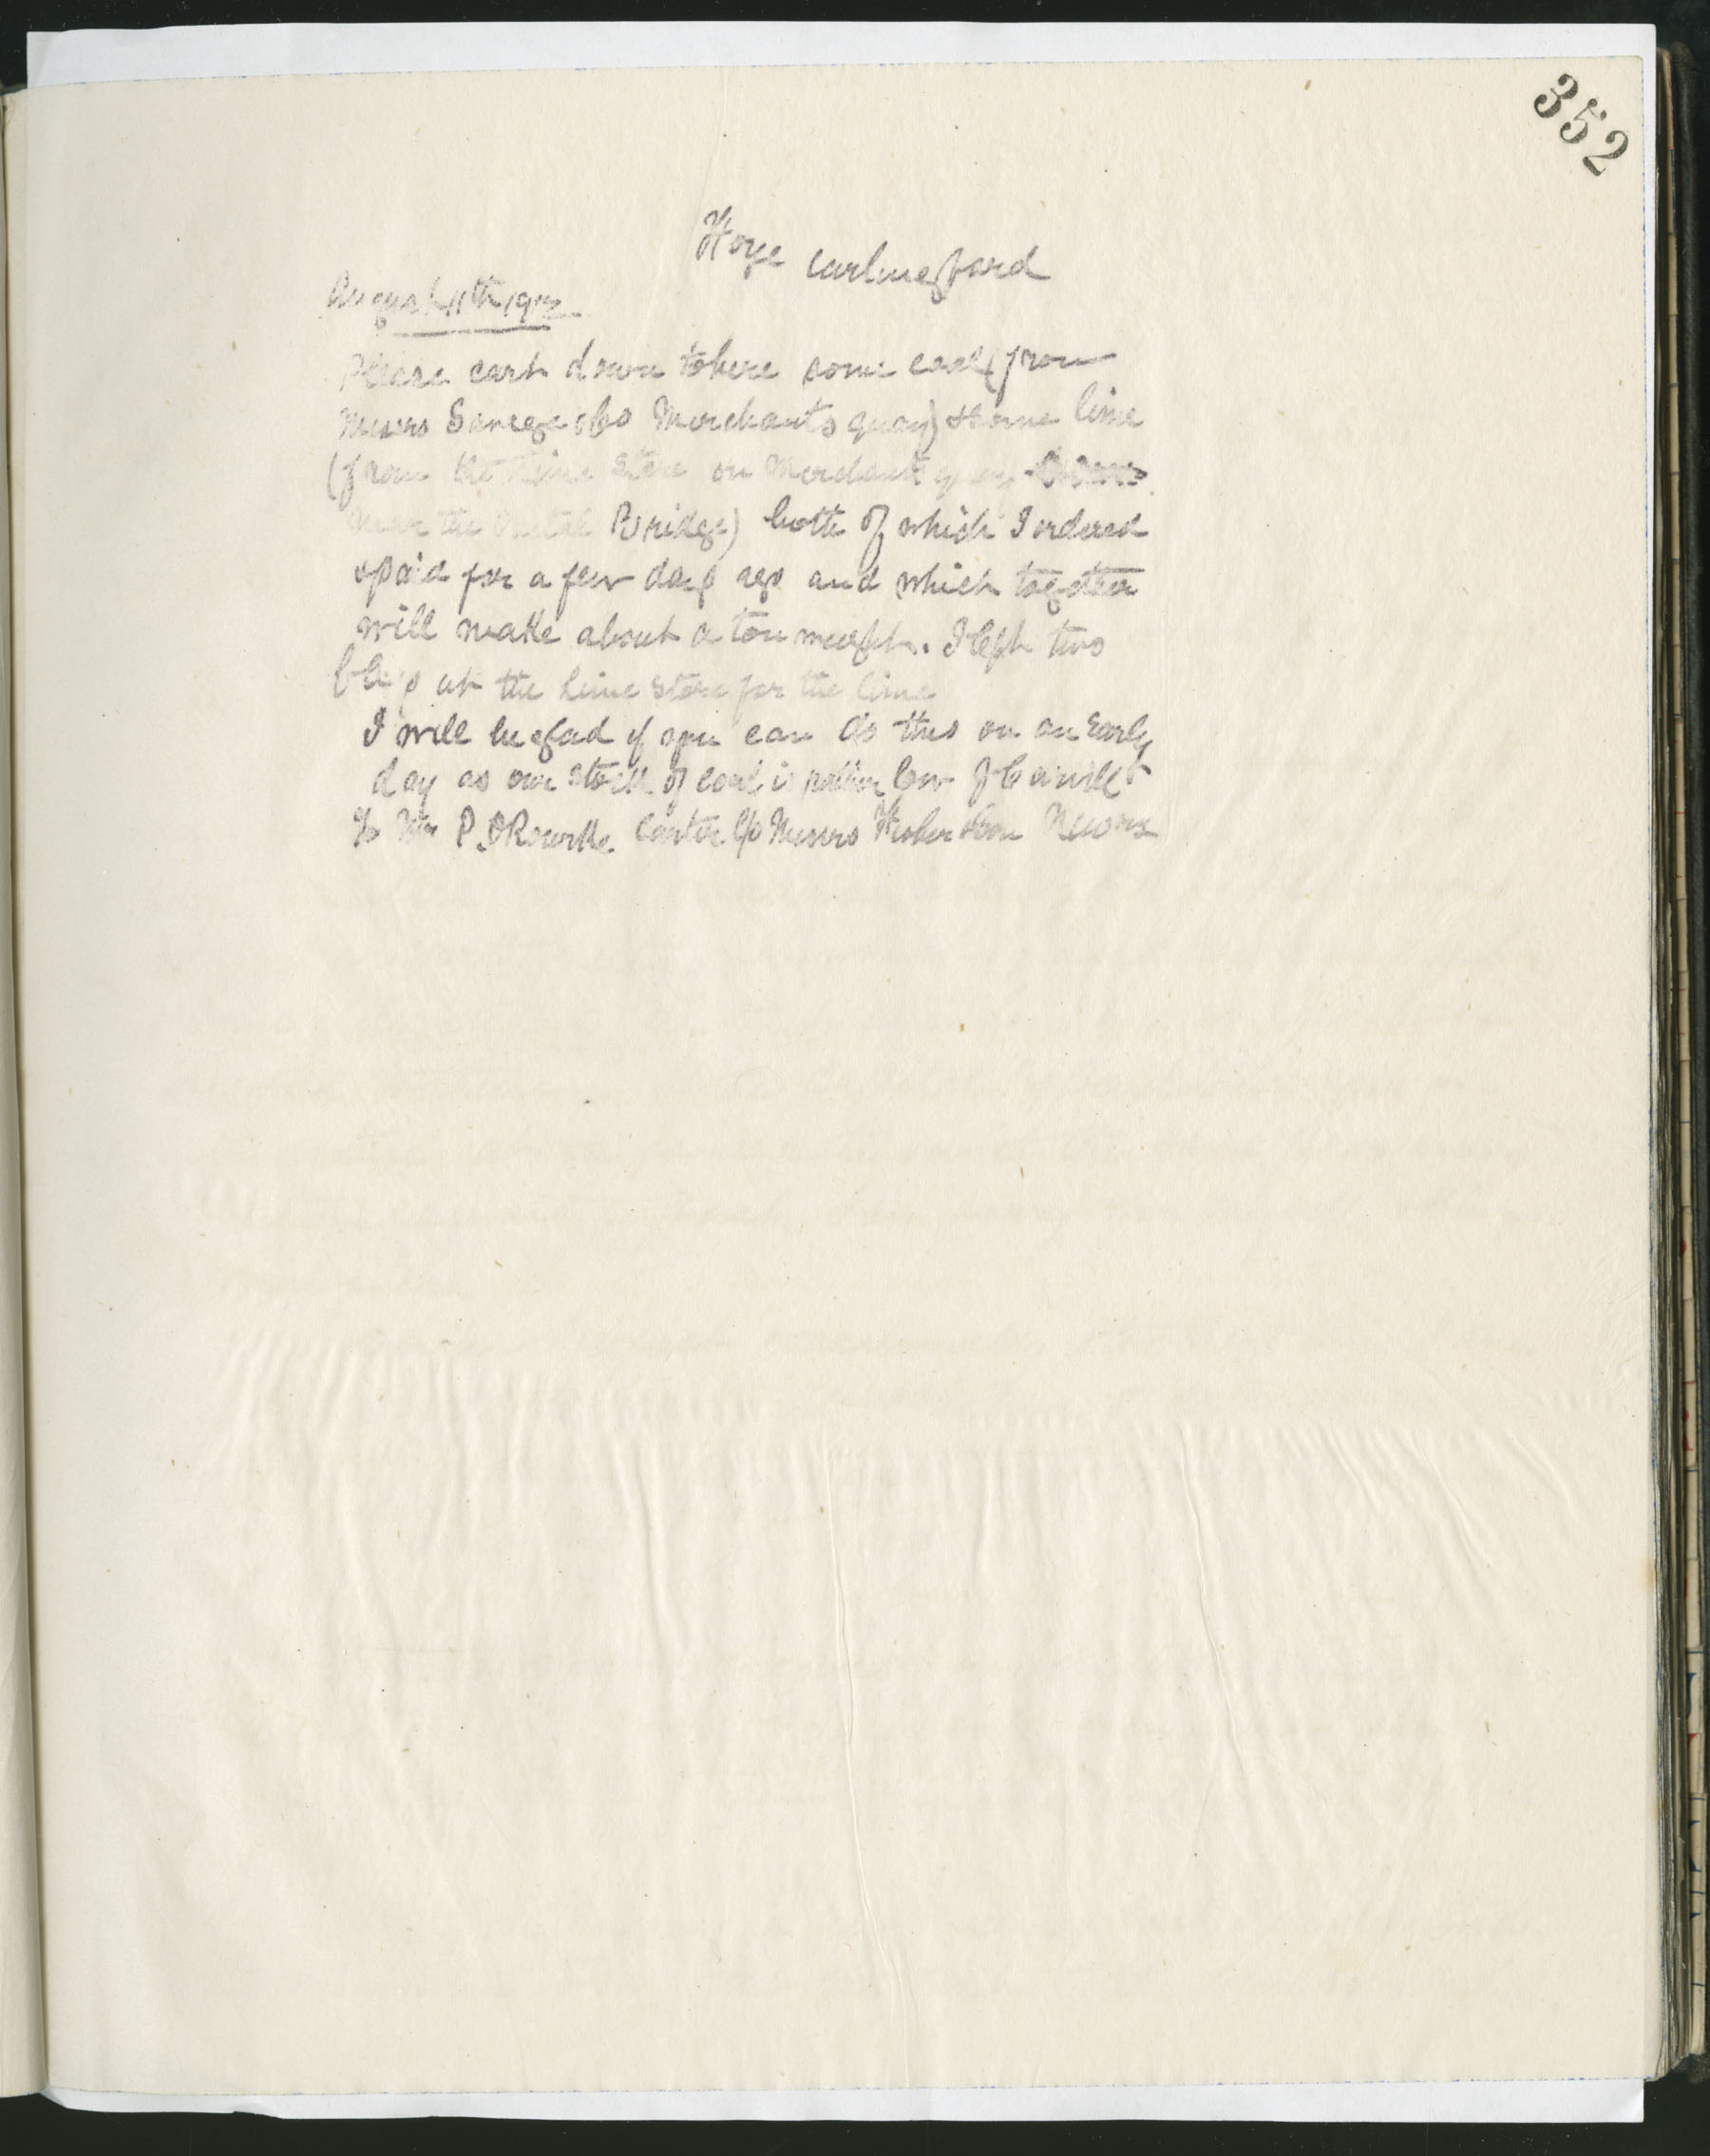 352
Carlingford
August 11th
Please cart down to here some coal (from
Messrs & Co Merchants quay) & some lime
(from the Lime Store on Merchants quay
near the Bridge) both of which I ordered
& paid for a few days ago and which together
will make about a ton weight. I left two
at the Lime Store for the lime
I will be glad if you can do this on an Early
day as our stock of coal is rather low
To Mr P. O'Rourke Carter c/o Messrs Fisher & Son Newry